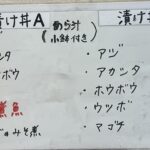 漬け丼A
(あら汁
小鉢付き)
ンタ
ボウ
煮魚
のみそ煮
漬け丼
・アジ
・アカンタ
・ホウボウ
・ウツボ
・マゴチ